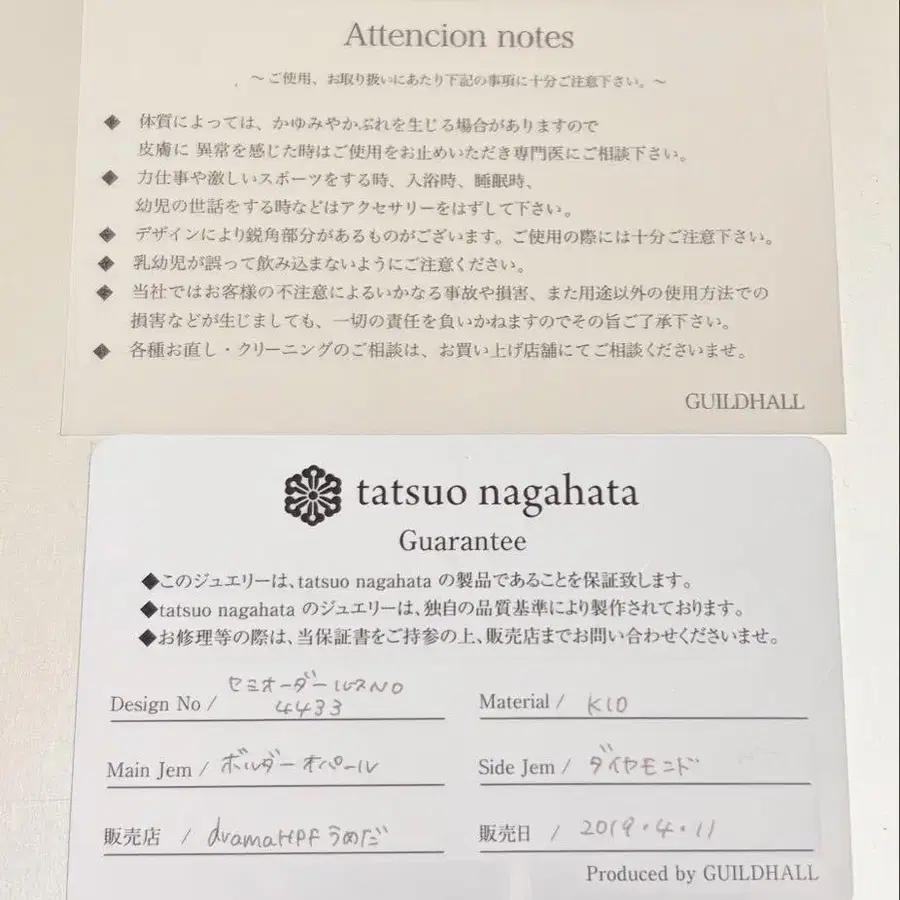 Attencion notes
～ご使用、お取り扱いにあたり下記の事項に十分ご注意下さい。～
◆ 体質によっては、かゆみやかぶれを生じる場合がありますので
皮膚に 異常を感じた時はご使用をお止めいただき専門医にご相談下さい。
◆ 力仕事や激しいスポーツをする時、入浴時、睡眠時、
幼児の世話をする時などはアクセサリーをはずして下さい。
◆ デザインにより鋭角部分があるものがございます。ご使用の際には十分ご注意下さい。
◆ 乳幼児が誤って飲み込まないようにご注意ください。
◆ 当社ではお客様の不注意によるいかなる事故や損害、また用途以外の使用方法での
損害などが生じましても、一切の責任を負いかねますのでその旨ご了承下さい。
◆ 各種お直し・クリーニングのご相談は、お買い上げ店舗にてご相談くださいませ。
GUILDHALL
tatsuo nagahata
Guarantee
◆このジュエリーは、tatsuo nagahata の製品であることを保証致します。
◆tatsuo nagahata のジュエリーは、独自の品質基準により製作されております。
◆お修理等の際は、当保証書をご持参の上、販売店までお問い合わせくださいませ。
Design No / セミオーダールースNO
4433
Material / K10
Main Jem / ボルダーオパール
Side Jem / ダイヤモンド
販売店 / dramaHPFうめだ
販売日 / 2019.4.11
Produced by GUILDHALL